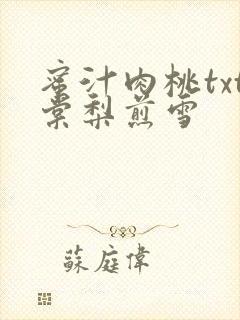 蜜汁肉桃txt
棠梨煎雪
蘇庭偉